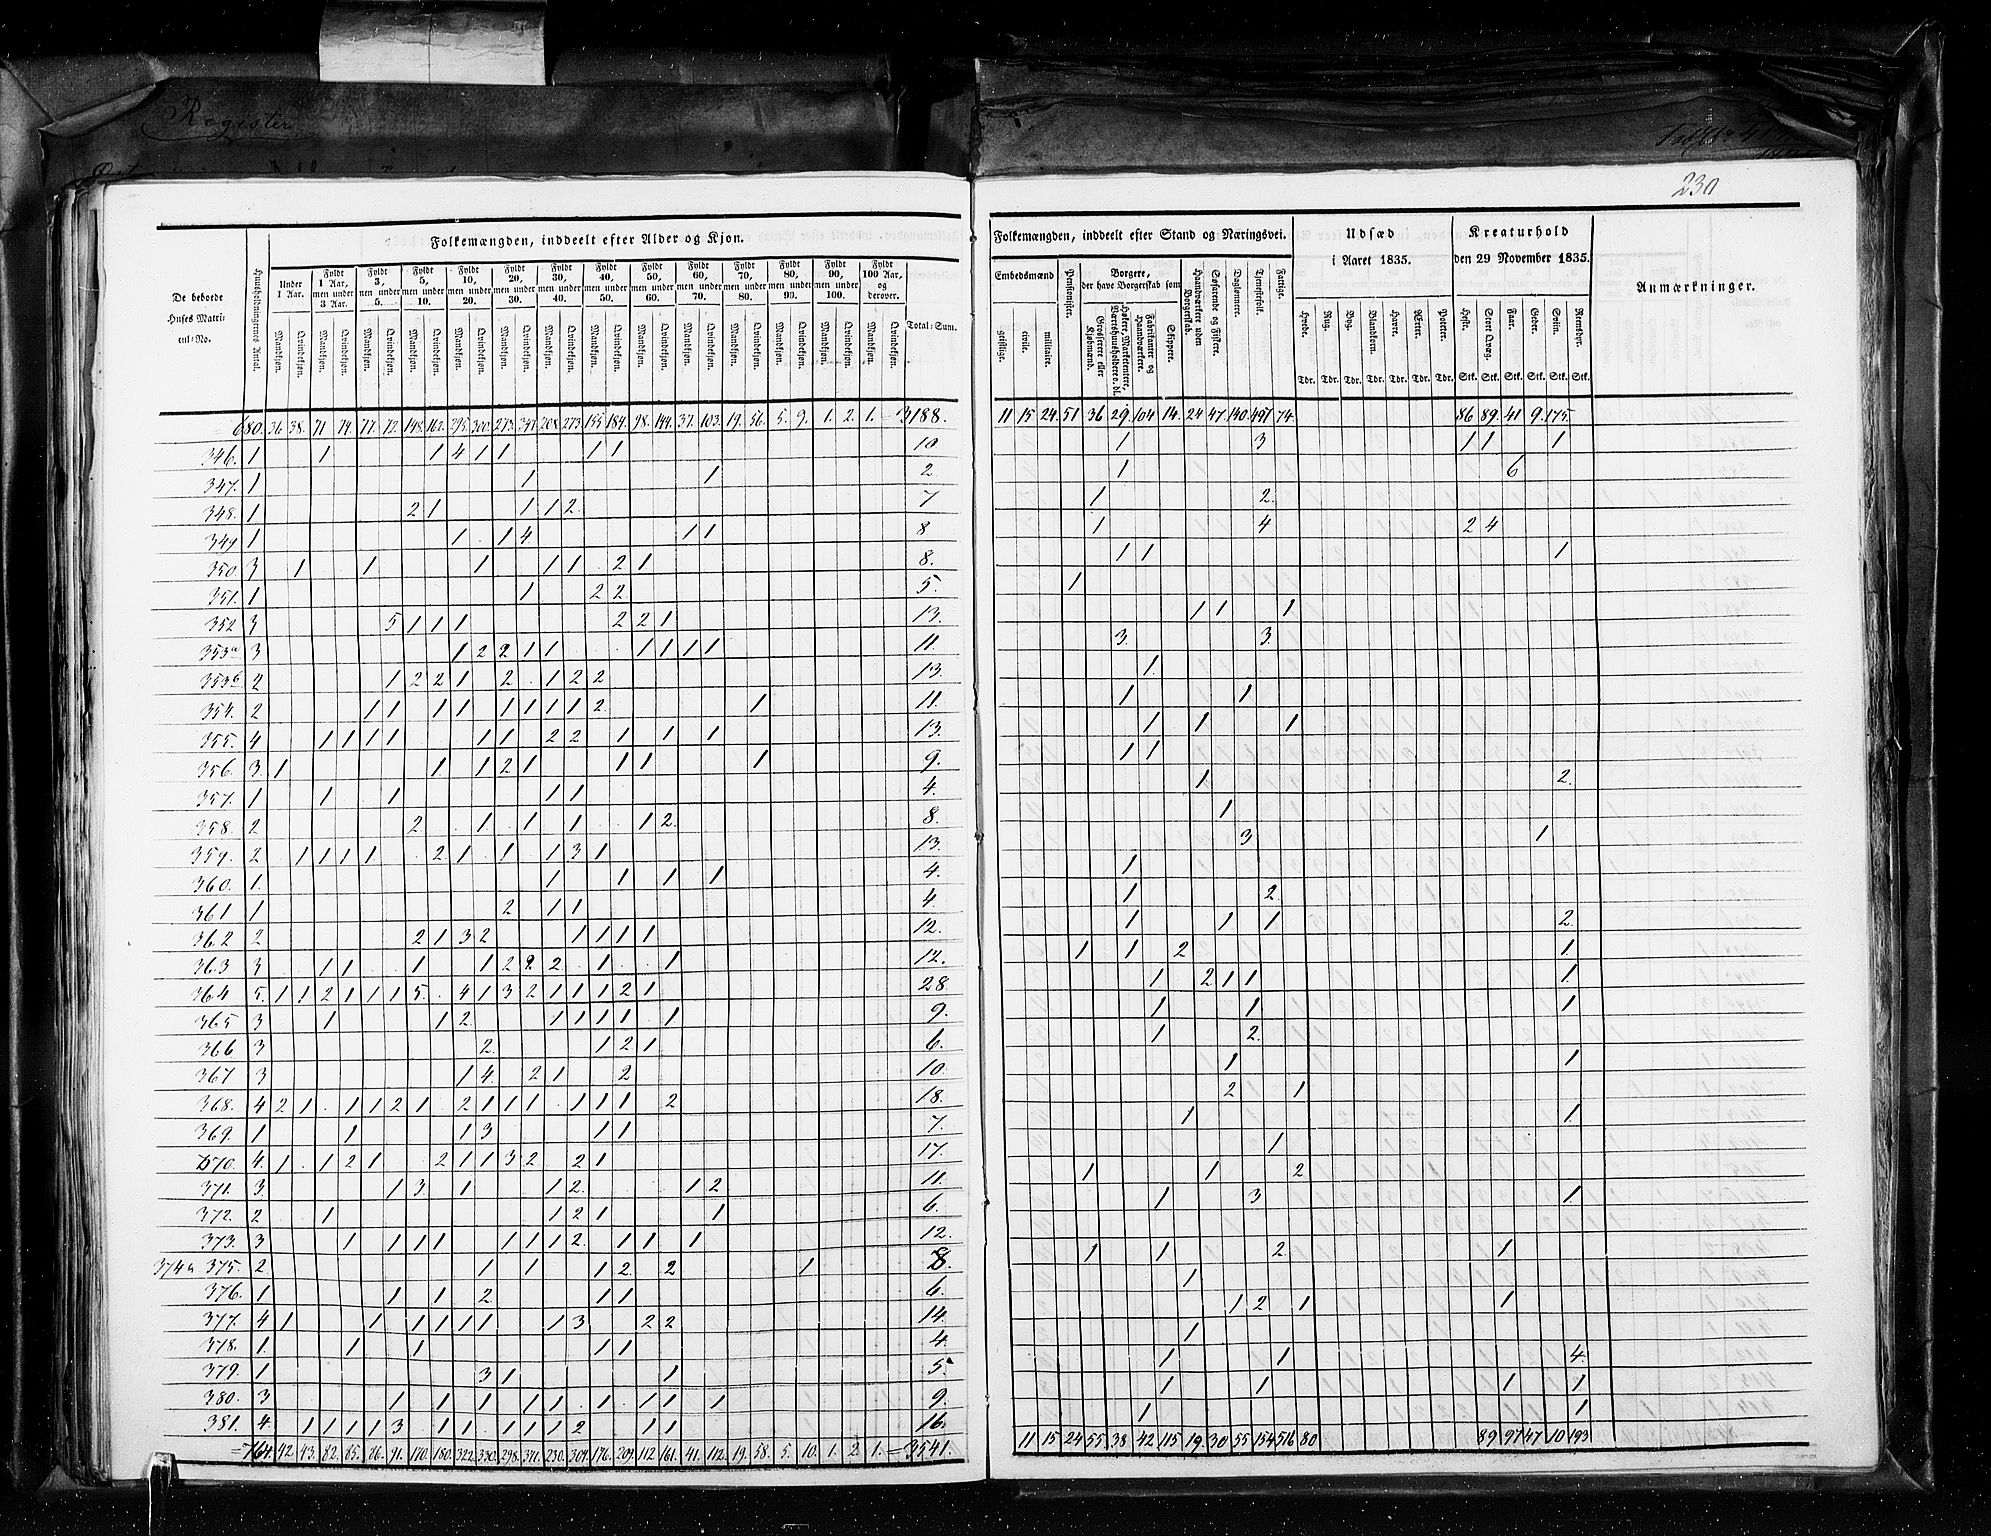 Register
230
Folkemængden, inddeelt efter Alder og Kjøn.
De beboede Huses Matricul-No.
Huusholdningernes Antal.
Under 1 Aar.
Fyldt 1 Aar, men under 3 Aar.
Fyldt 3, men under 5.
Fyldt 5, men under 10.
Fyldt 10, men under 20.
Fyldt 20, men under 30.
Fyldt 30, men under 40.
Fyldt 40, men under 50.
Fyldt 50, men under 60.
Fyldt 60, men under 70.
Fyldt 70, men under 80.
Fyldt 80, men under 90.
Fyldt 90, men under 100.
Fyldt 100 Aar, og derover.
Mandkjøn. Qvindekjøn.
Total-Sum.
680. 36. 38. 71. 74. 77. 72. 148. 162. 295. 300. 273. 347. 208. 273. 155. 184. 98. 144. 37. 103. 19. 56. 5. 9. 1. 2. 1. = 3188.
346. 1 1 1 4 1 1 1 1 10
347. 1 1 1 2
348. 1 2 1 1 1 2 7
349 1 1 1 4 1 1 8
350. 3 1 1 1 1 1 2 1 8.
351. 1 1 2 2 5.
352 3 5 1 1 1 2 2 1 13.
353a 3 1 2 2 1 1 1 1 1 1 11.
353b 2 1 2 2 1 2 1 2 2 13.
354. 2 1 1 1 1 1 1 1 1 2 1 11.
355. 4 1 1 1 1 1 1 2 2 1 1 1 13.
356. 3. 1 1 1 2 1 1 1 1 9.
357. 1 1 1 1 1 4.
358. 2 2 1 1 1 1 2. 8.
359. 2 1 1 1 1 2 1 1 1 3 1 13.
360. 1. 1 1 1 1 4.
361 1 2 1 1 4
362 2 2 1 3 2 1 1 1 1 12.
363 3 1 1 1 1 2 2 2 1 1 12.
364 5. 1 1 2 1 1 1 5. 4 1 3 2 1 1 1 2 1 28
365 3 1 1 2 1 1 1 1 1 9.
366 3 2. 1 2 1 6.
367 3 1 4. 2 1 2 10
368. 4 2 1 1 1 2 1 2 1 1 1 1 1 1 2 18.
369. 1 1 1 3 1 1 7.
370. 4. 1 1 2 1 2 1 1 3 2 2 1 17.
371. 3. 1 3. 1 1 2. 1 2 11.
372. 2 1 1 2 1 1 6.
373. 3 1 1 1 1 1 1 1 2 1 1 1 12.
374a 375. 2 1 1 1 2. 2 1 8.
376. 1 1 1 2 1 1 6.
377. 4 1 1 1 1 1 1 1 3 2 2 14.
378. 1. 1 1 1 1 4
379. 1 3 1 1 5.
380. 3 1 1 1 1 1 1 1 1 1 9.
381. 4. 1 1 1 1 3 1 1 1 1 1 2 1 1 16.
=764. 42. 43. 82. 85. 86. 91. 170. 180. 322. 330. 298. 371. 230. 304. 176. 209. 112 161. 41. 112. 19. 58. 5. 10. 1. 2. 1. = 3541.
Folkemængden, inddeelt efter Stand og Næringsvei.
Embedsmænd
geistlige. civile. militaire.
Pensionister.
Borgere, der have Borgerskab som
Grosserere eller Kjøbmænd.
Høkere, Marketentere, Værtshuusholdere o. dl.
Fabrikanter og Haandværkere.
Skippere.
Haandværkere uden Borgerskab.
Søfarende og Fiskere.
Daglønnere.
Tjenestefolk.
Fattige.
Udsæd i Aaret 1835.
Hvede. Rug. Byg. Blandkorn. Havre. Ærter. Poteter.
Tdr. Tdr. Tdr. Tdr. Tdr. Tdr. Tdr.
Kreaturhold den 29 November 1835.
Heste. Stort Qvæg. Faar. Geder. Sviin. Rensdyr.
Stk. Stk. Stk. Stk. Stk. Stk.
Anmærkninger.
11 15 24. 51 36 29. 104 14. 24 47. 140. 497 74. 86 89. 41 9. 175.
1 3 1 1 1
1 6
1 2.
1 4 2 4
1 1 1
1
1 1 1
3. 3.
1.
1 1
1 1 1
1 1
1 2.
1
3 1
1
1 2.
1 1 1 2.
1 1 2 1.
1 2 1 1 1.
1 1 1
1 2.
1 1
2 1
1 1.
1
1 1 2
1 3 1.
1 1 2 1
1
1 2 1 1
1
1 1 4.
1 1 1 1
1 1
11 15 24 55 38 42 115 19. 30 55 154 516 80 89 97 47 10 193